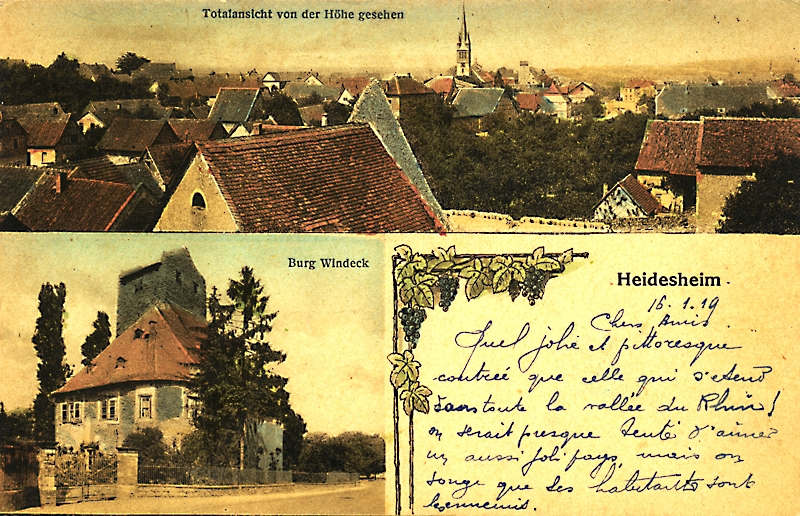 Totalansicht von der Höhe gesehen
Burg Windeck
Heidesheim
16.1.19
Chers Amis
Quel jolie et pittoresque
contrée que celle qui s'etend
dans toute la vallée du Rhin!
on serait presque tenté d'aimer
un aussi joli pays, mais on
songe que ses habitants sont
kennemis.